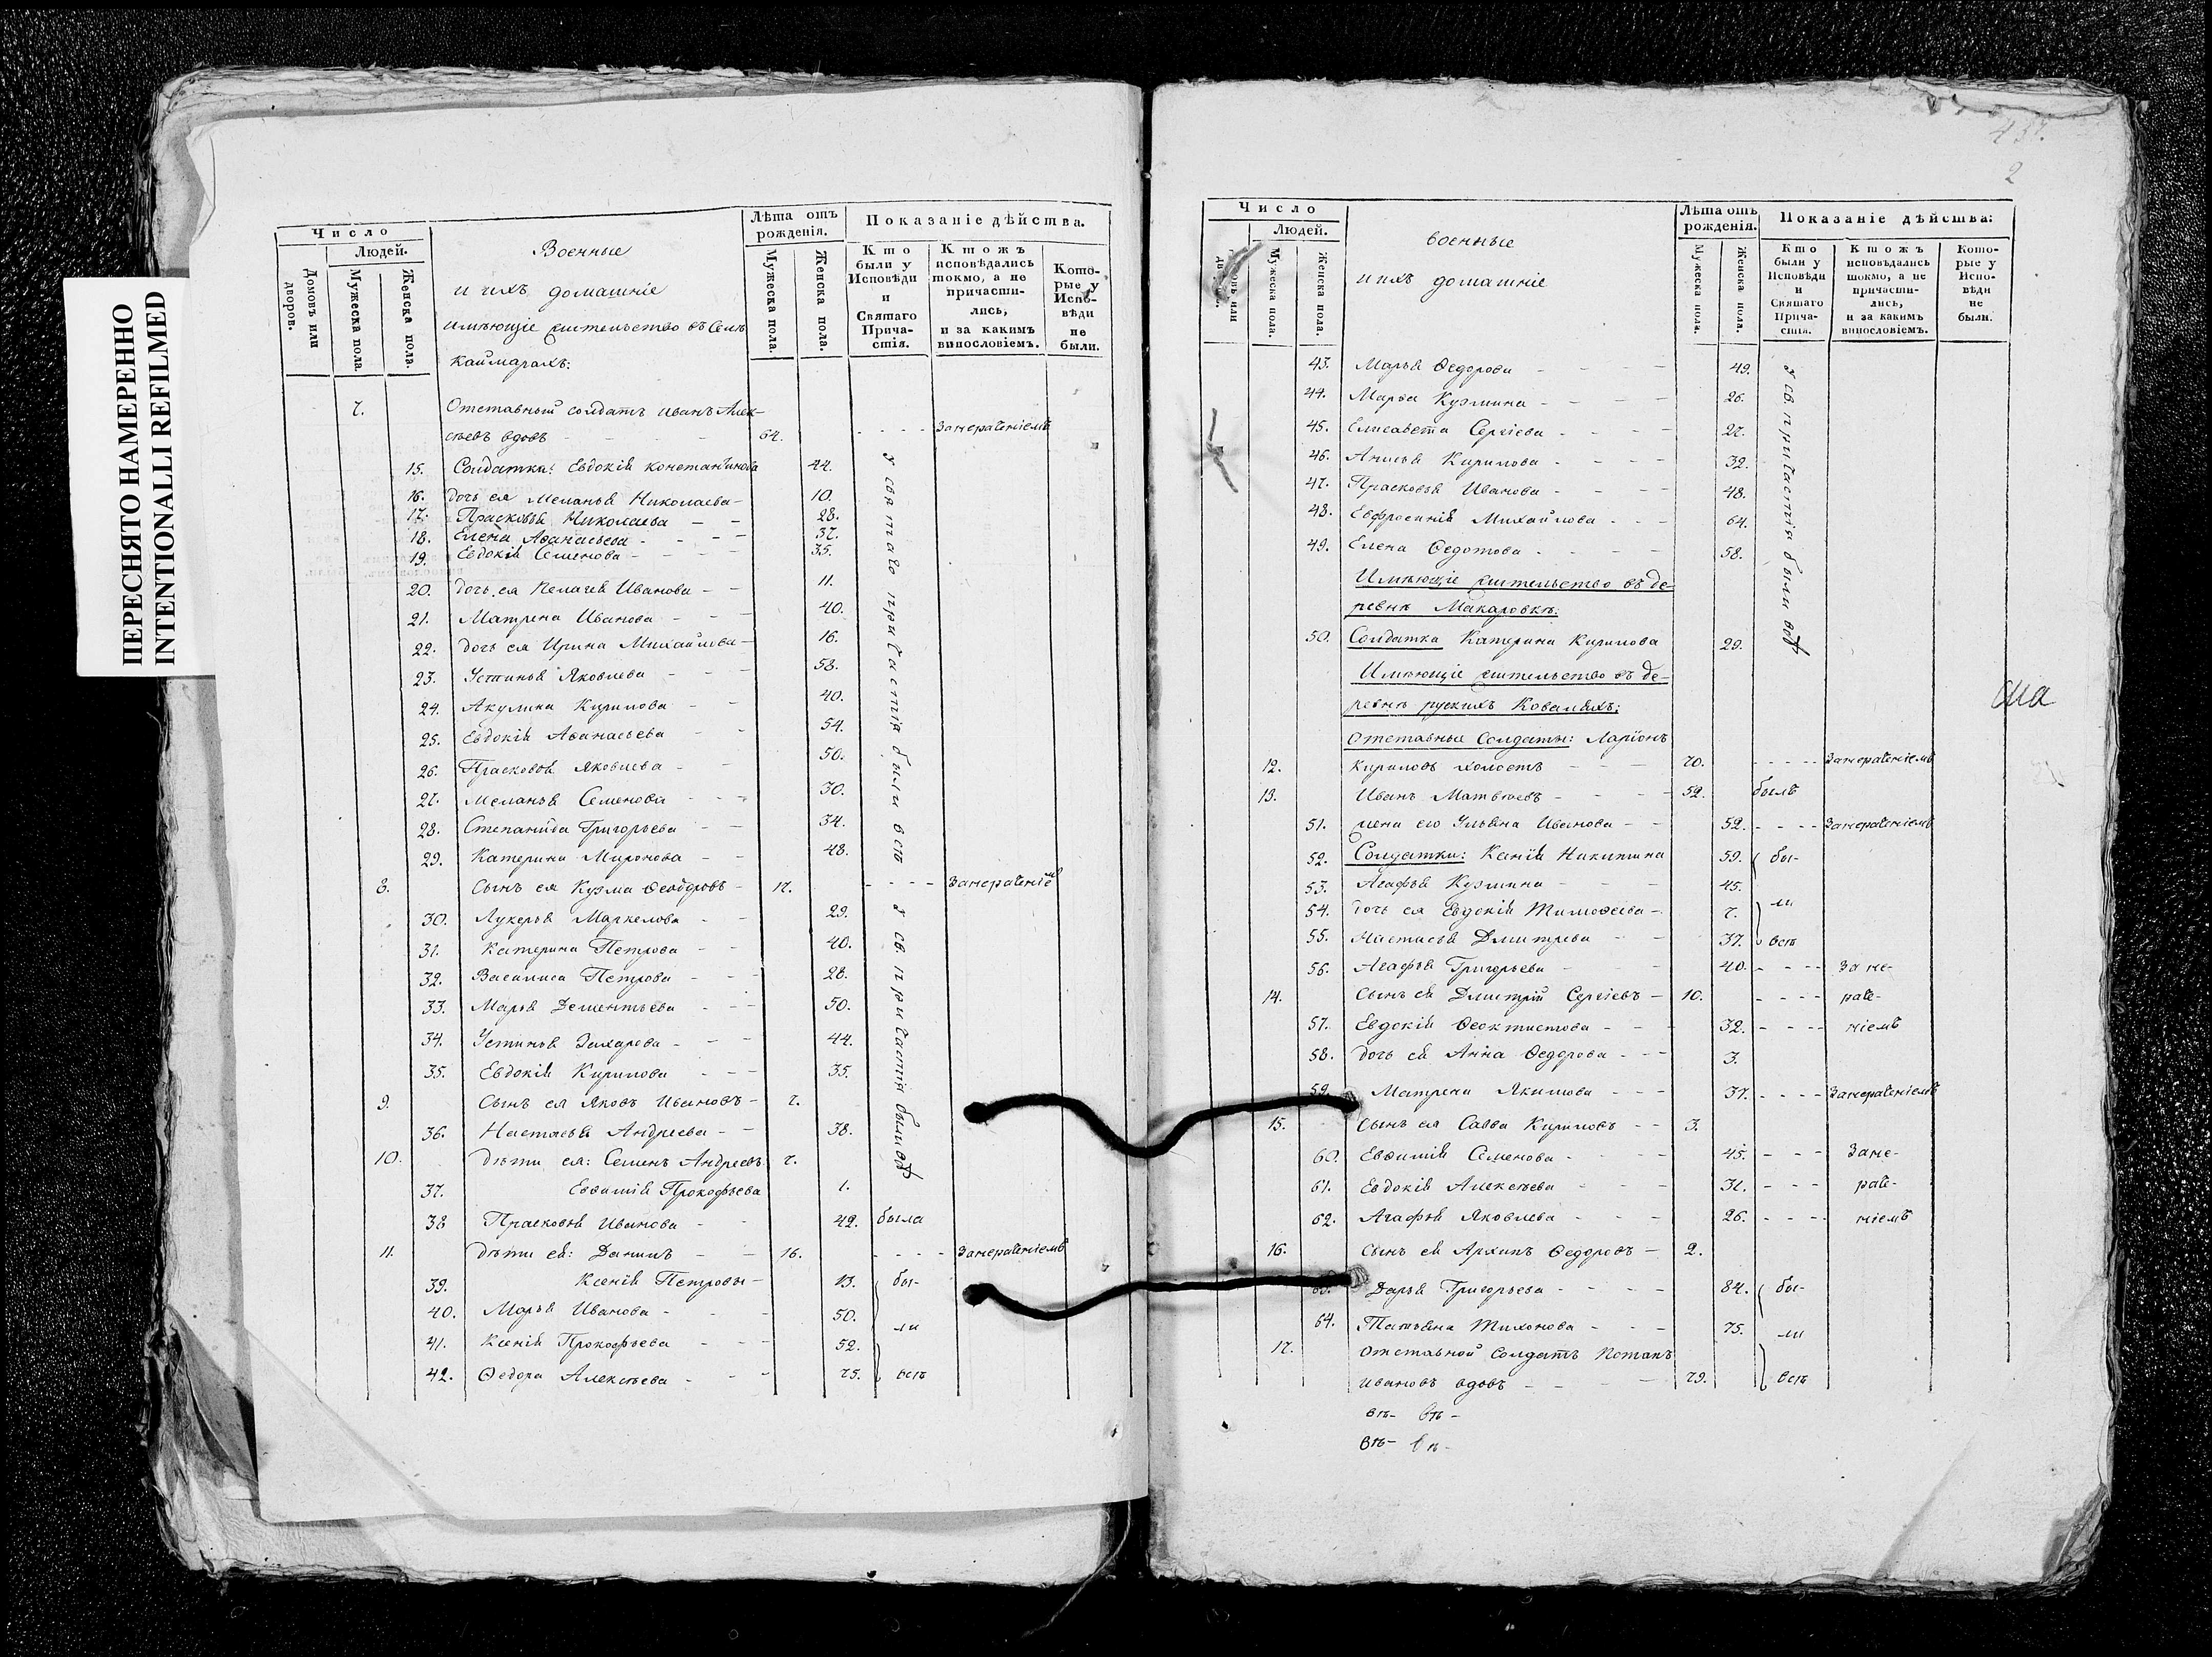 ПЕРЕСНЯТО НАМЕРЕННО
INTENTIONALLI REFILMED
Число
Людей.
Домовъ или дворовъ.
Мужеска пола.
Женска пола.
Военные
и ихъ домашніе
имѣющіе жительство въ Селѣ
Каймарахъ:
Лѣта отъ рожденія.
Мужеска пола.
Женска пола.
Показаніе дѣйства.
Кто были у Исповѣди и Святаго Причастія.
Ктожъ исповѣдались токмо, а не причастились, и за какимъ винословіемъ.
Которые у Исповѣди не были.
7. Отставный солдатъ Иванъ Алек-
сѣевъ вдовъ - 64. - - - - Занераченіемъ
15. Солдатки: Евдокія Константинова 44.
16. дочь ея Меланья Николаева - 10.
17. Прасковья Николаева - - 28.
18. Елена Аѳанасьева - - - 37.
19. Евдокія Семенова - - - 35.
20. дочь ея Пелагея Иванова - - 11.
21. Матрена Иванова - - 40.
22. дочь ея Ирина Михайлова - 16.
23. Устинья Яковлева - - 58.
24. Акулина Кирилова - - 40.
25. Евдокія Аѳанасьева - - 54.
26. Прасковья Яковлева - - 50.
27. Меланья Семенова - - - 30.
28. Степанида Григорьева - - 34.
29. Катерина Миронова - - 48.
8. Сынъ ея Кузма Ѳеодоровъ - 17. - - - - Занераченіемъ
30. Лукерья Маркелова - - 29.
31. Катерина Петрова - - 40.
32. Василиса Петрова - - - 28.
33. Марья Дементьева - - - 50.
34. Устинья Захарова - - - 44.
35. Евдокія Кирилова - - - 35.
9. Сынъ ея Яковъ Ивановъ - 7.
36. Настасья Андреева - - 38.
10. дѣти ея: Семенъ Андреевъ 7.
37. Евѳимія Прокофьева 1.
38 Прасковья Иванова - - 42. была
11. дѣти ея: Данилъ - - 16. - - - - Занераченіемъ
39. Ксенія Петровы - 13. бы-
40. Марья Иванова - - - 50. ли
41. Ксенія Прокофьева - - - 52.
42. Ѳедора Алексѣева - - - 75. всѣ
у святаго причастія были всѣ
у св. причастія были всѣ
437.
2
Число
Людей.
Домовъ или дворовъ.
Мужеска пола.
Женска пола.
военные
и ихъ домашніе
Лѣта отъ рожденія.
Мужеска пола.
Женска пола.
Показаніе дѣйства:
Кто были у Исповѣди и Святаго Причастія.
Ктожъ исповѣдались токмо, а не причастились, и за какимъ винословіемъ.
Которые у Исповѣди не были.
43. Марья Ѳедорова - - - - 49.
44. Марья Кузмина - - - - 26.
45. Елисавета Сергіева - - - - 27.
46. Анисья Кирилова - - - - 32.
47. Прасковья Иванова - - - - 48.
48. Евфросинія Михайлова - - - 64.
49. Елена Ѳедотова - - - - 58.
Имѣющіе жительство въ де-
ревнѣ Макаровкѣ:
50. Солдатка Катерина Кирилова 29.
у св. причастія были всѣ
Имѣющіе жительство въ де-
ревнѣ рускихъ Коваляхъ:
Отставные Солдаты: Ларіонъ
12. Кириловъ холостъ - - - 70. - - - - Занераченіемъ
13. Иванъ Матвѣевъ - - - - 52. былъ
51. жена его Ульяна Иванова - - 52. - - - - Занераченіемъ
52. Солдатки: Ксенія Никитина 59. бы-
53. Агафья Кузмина - - - 45.
54. дочь ея Евдокія Тимоѳеева - 7. ли
55. Настасья Дмитрева - - 37. всѣ
56. Агафья Григорьева - - - 40. - - - За не-
14. Сынъ ея Дмитрій Сергіевъ - 10. - - - - раче-
57. Евдокія Ѳеоктистова - - - 32. - - - - ніемъ
58. дочь ея Анна Ѳедорова - - - 3.
59. Матрена Якимова - - - 37. - - - - Занераченіемъ
15. Сынъ ея Савва Кириловъ - - 3.
60. Евѳимія Семенова - - - - 45. - - - Зане-
61. Евдокія Алексѣева - - - 31. - - - раче-
62. Агафья Яковлева - - - - 26. - - - - ніемъ
16. Сынъ ея Архипъ Ѳедоровъ - 2.
63. Дарья Григорьева - - - - 84. бы-
64. Татьяна Тихонова - - - 75. ли
17. отставной Солдатъ Потапъ
Ивановъ вдовъ - - - - 79. всѣ